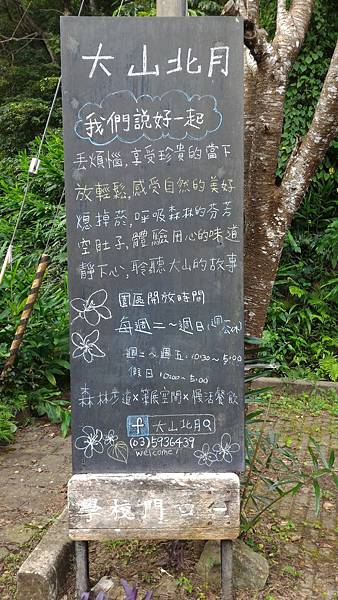 大山北月
我們說好一起
丟煩惱,享受珍貴的當下
放輕鬆,感受自然的美好
熄掉菸,呼吸森林的芬芳
空肚子,體驗用心的味道
靜下心,聆聽大山的故事
園區開放時間
每週二~週日(週一公休)
週二~週五:10:30~5:00
假日:10:00~5:00
森林步道×策展空間×慢活餐飲
f 大山北月
(03)5936439
welcome!
學校門口